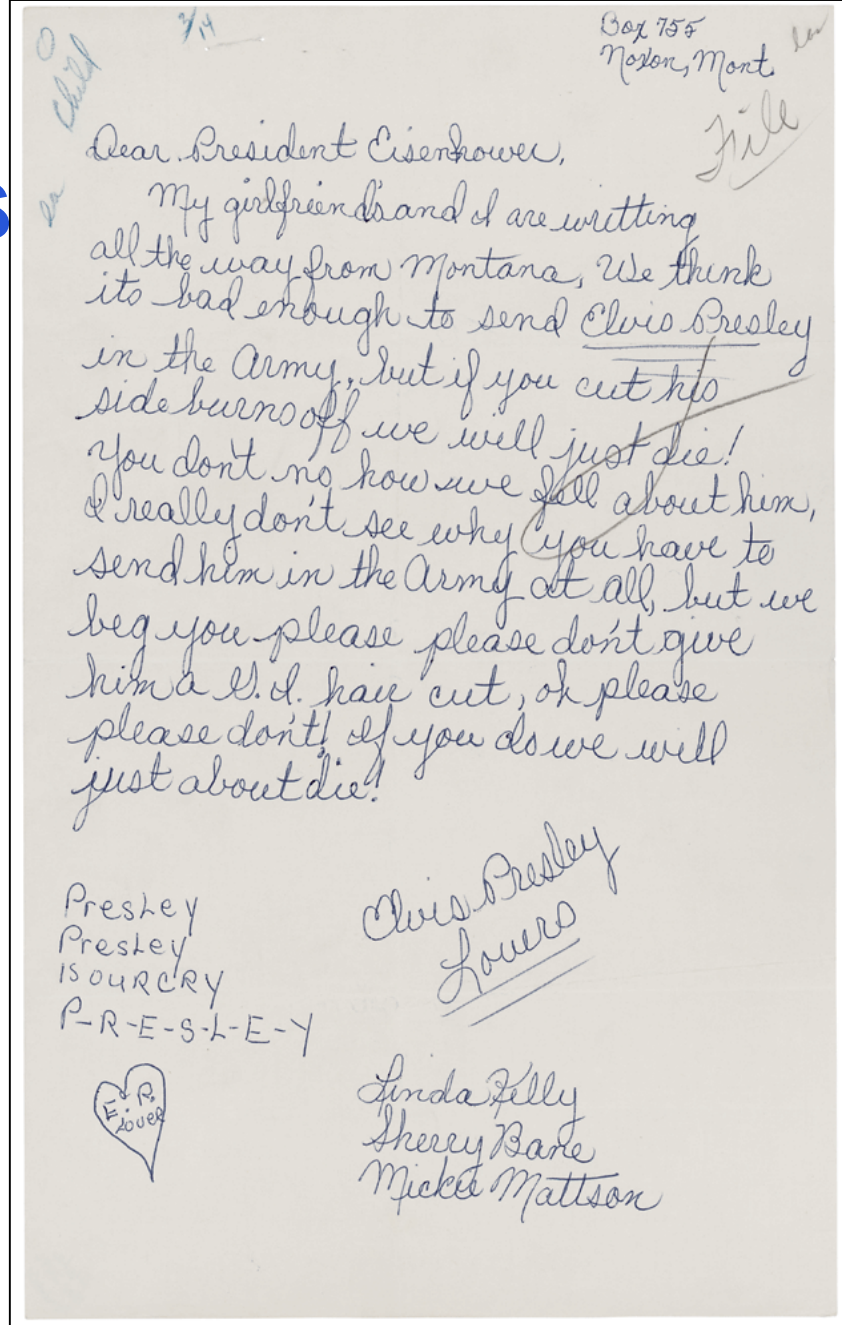 3/14
Box 755
Noxon, Mont.
Child
File
Dear President Eisenhower,
My girlfriend's and I are writting
all the way from Montana, We think
its bad enough to send Elvis Presley
in the Army, but if you cut his
side burns off we will just die!
You don't no how we fell about him,
I really don't see why you have to
send him in the Army at all, but we
beg you please please don't give
him a G.I. hair cut, oh please
please don't! If you do we will
just about die!
Elvis Presley
Lovers
Presley
Presley
IS OUR CRY
P-R-E-S-L-E-Y
E. P.
Lover
Linda Kelly
Sherry Bane
Mickie Mattson